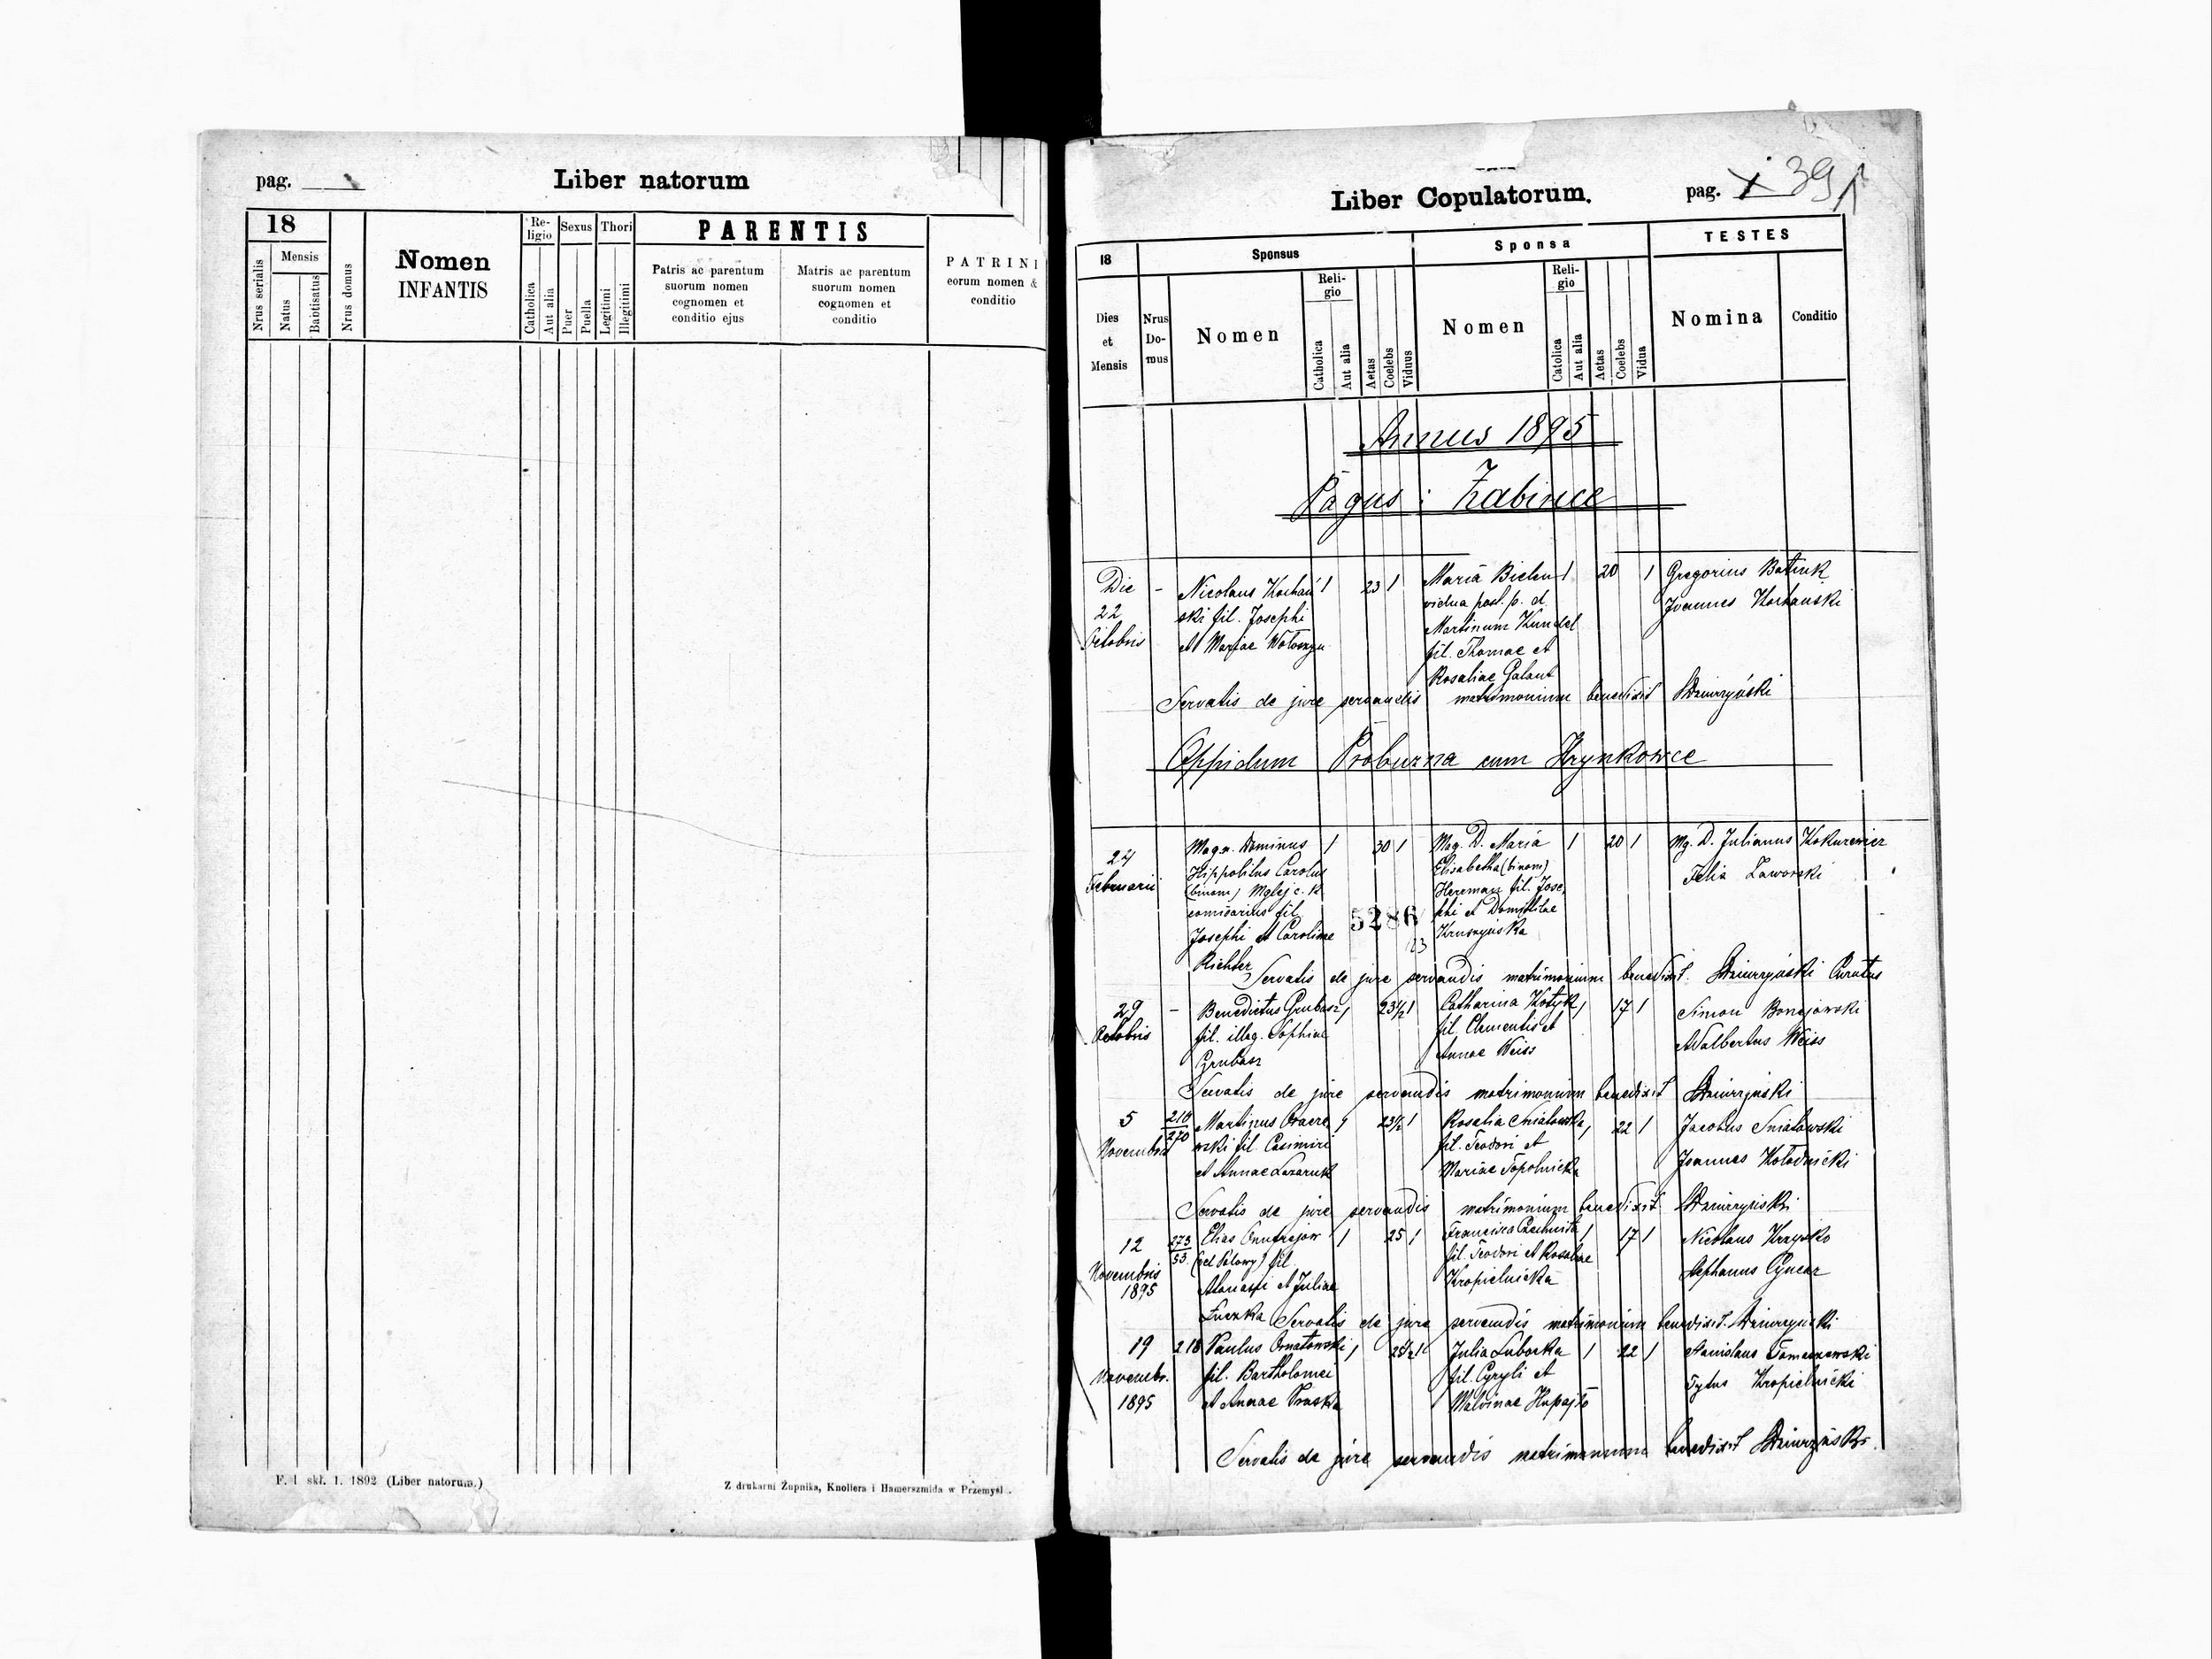 pag.
Liber natorum
18
Nrus serialis
Mensis
Natus
Babtisatus
Nrus domus
Nomen
INFANTIS
Re-
ligio
Catholica
Aut alia
Sexus
Puer
Puella
Thori
Legitimi
Illegitimi
PARENTIS
Patris ac parentum
suorum nomen
cognomen et
conditio ejus
Matris ac parentum
suorum nomen
cognomen et
conditio
PATRINI
eorum nomen &
conditio
F. 1 skł. 1. 1892 (Liber natorum.)
Z drukarni Żupnika, Knollera i Hamerszmida w Przemyśl
Liber Copulatorum.
pag. 39
18
Dies
et
Mensis
Nrus
Do-
mus
Sponsus
Nomen
Reli-
gio
Catholica
Aut alia
Aetas
Coelebs
Viduus
Sponsa
Nomen
Reli-
gio
Catolica
Aut alia
Aetas
Coelebs
Vidua
TESTES
Nomina
Conditio
Annus 1895
Pagus: Żabince
Die - Nicolaus Kochań 1 23 1 Maria Bielen 1 20 1 Gregorius
22 ski fil. Josephi vidua post. p. d. Joannes Kochanski
Octobris et Mariae Martinum Kundel
fil. Thomae et
Rosaliae Galant
Servatis de jure servandis matrimonium benedixit
Oppidum Probuzna cum Hrynkowce
Magn. Dominus 1 30 1 Mag. D. Maria 1 20 1 Mg. D. Julianus
Februarii Hippolitus Carolus Elisabetha (binom)
(binom) Mglej c. k. fil. Jose
comisarius fil. 5286 phi et Domitilae
Josephi et Carolinae 23
Richter
Servatis de jure servandis matrimonium benedixit Curatus
29 - Benedictus Grubasz 1 23½ 1 Catharina Kotyk 1 17 1 Simon
Octobris fil. illeg. Sophiae fil. Clementis et Adalbertus Weiss
Grubasz Annae Weiss
Servatis de jure servandis matrimonium benedixit
5 210 Martinus 1 23½ 1 Rosalia 1 22 1 Jacobus Sniatowski
Novembris 270 fil. Casimiri fil. Teodori et Joannes Kołodnicki
et Annae Mariae Topolnicka
Servatis de jure servandis matrimonium benedixit
12 273 Elias 1 25 1 Francisca 1 17 1 Nicolaus
53 fil. fil. Teodori et Rosaliae Stephanus
Novembris et Juliae Kropielnicka
1895
Servatis de jure servandis matrimonium benedixit
19 218 Paulus Ornatowski 1 25½ 1 Julia 1 22 1 Stanislaus
Novembr. fil. Bartholomei fil. Cyryli et Tytus Kropielnicki
1895 et Annae Malvinae
Servatis de jure servandis matrimonium benedixit